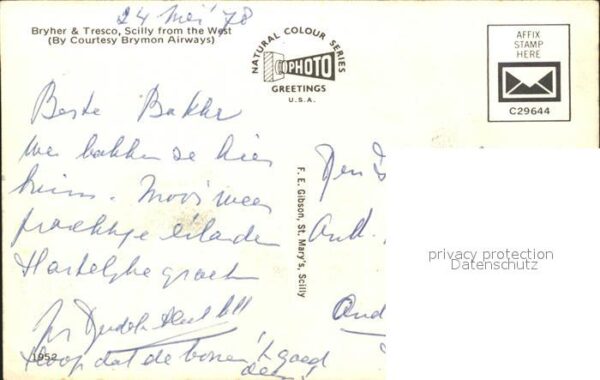 24 Mei '78
Bryher & Tresco, Scilly from the West
(By Courtesy Brymon Airways)
NATURAL COLOUR SERIES
PHOTO
GREETINGS
U.S.A.
AFFIX
STAMP
HERE
C29644
Beste Bakker
We bakken ze hier
bruin. Mooi weer
prachtige eilanden
Hartelijke groeten
1952
Hoop dat de bonen 't goed
doen!
F. E. Gibson, St. Mary's, Scilly
Den
And
privacy protection
Datenschutz
And